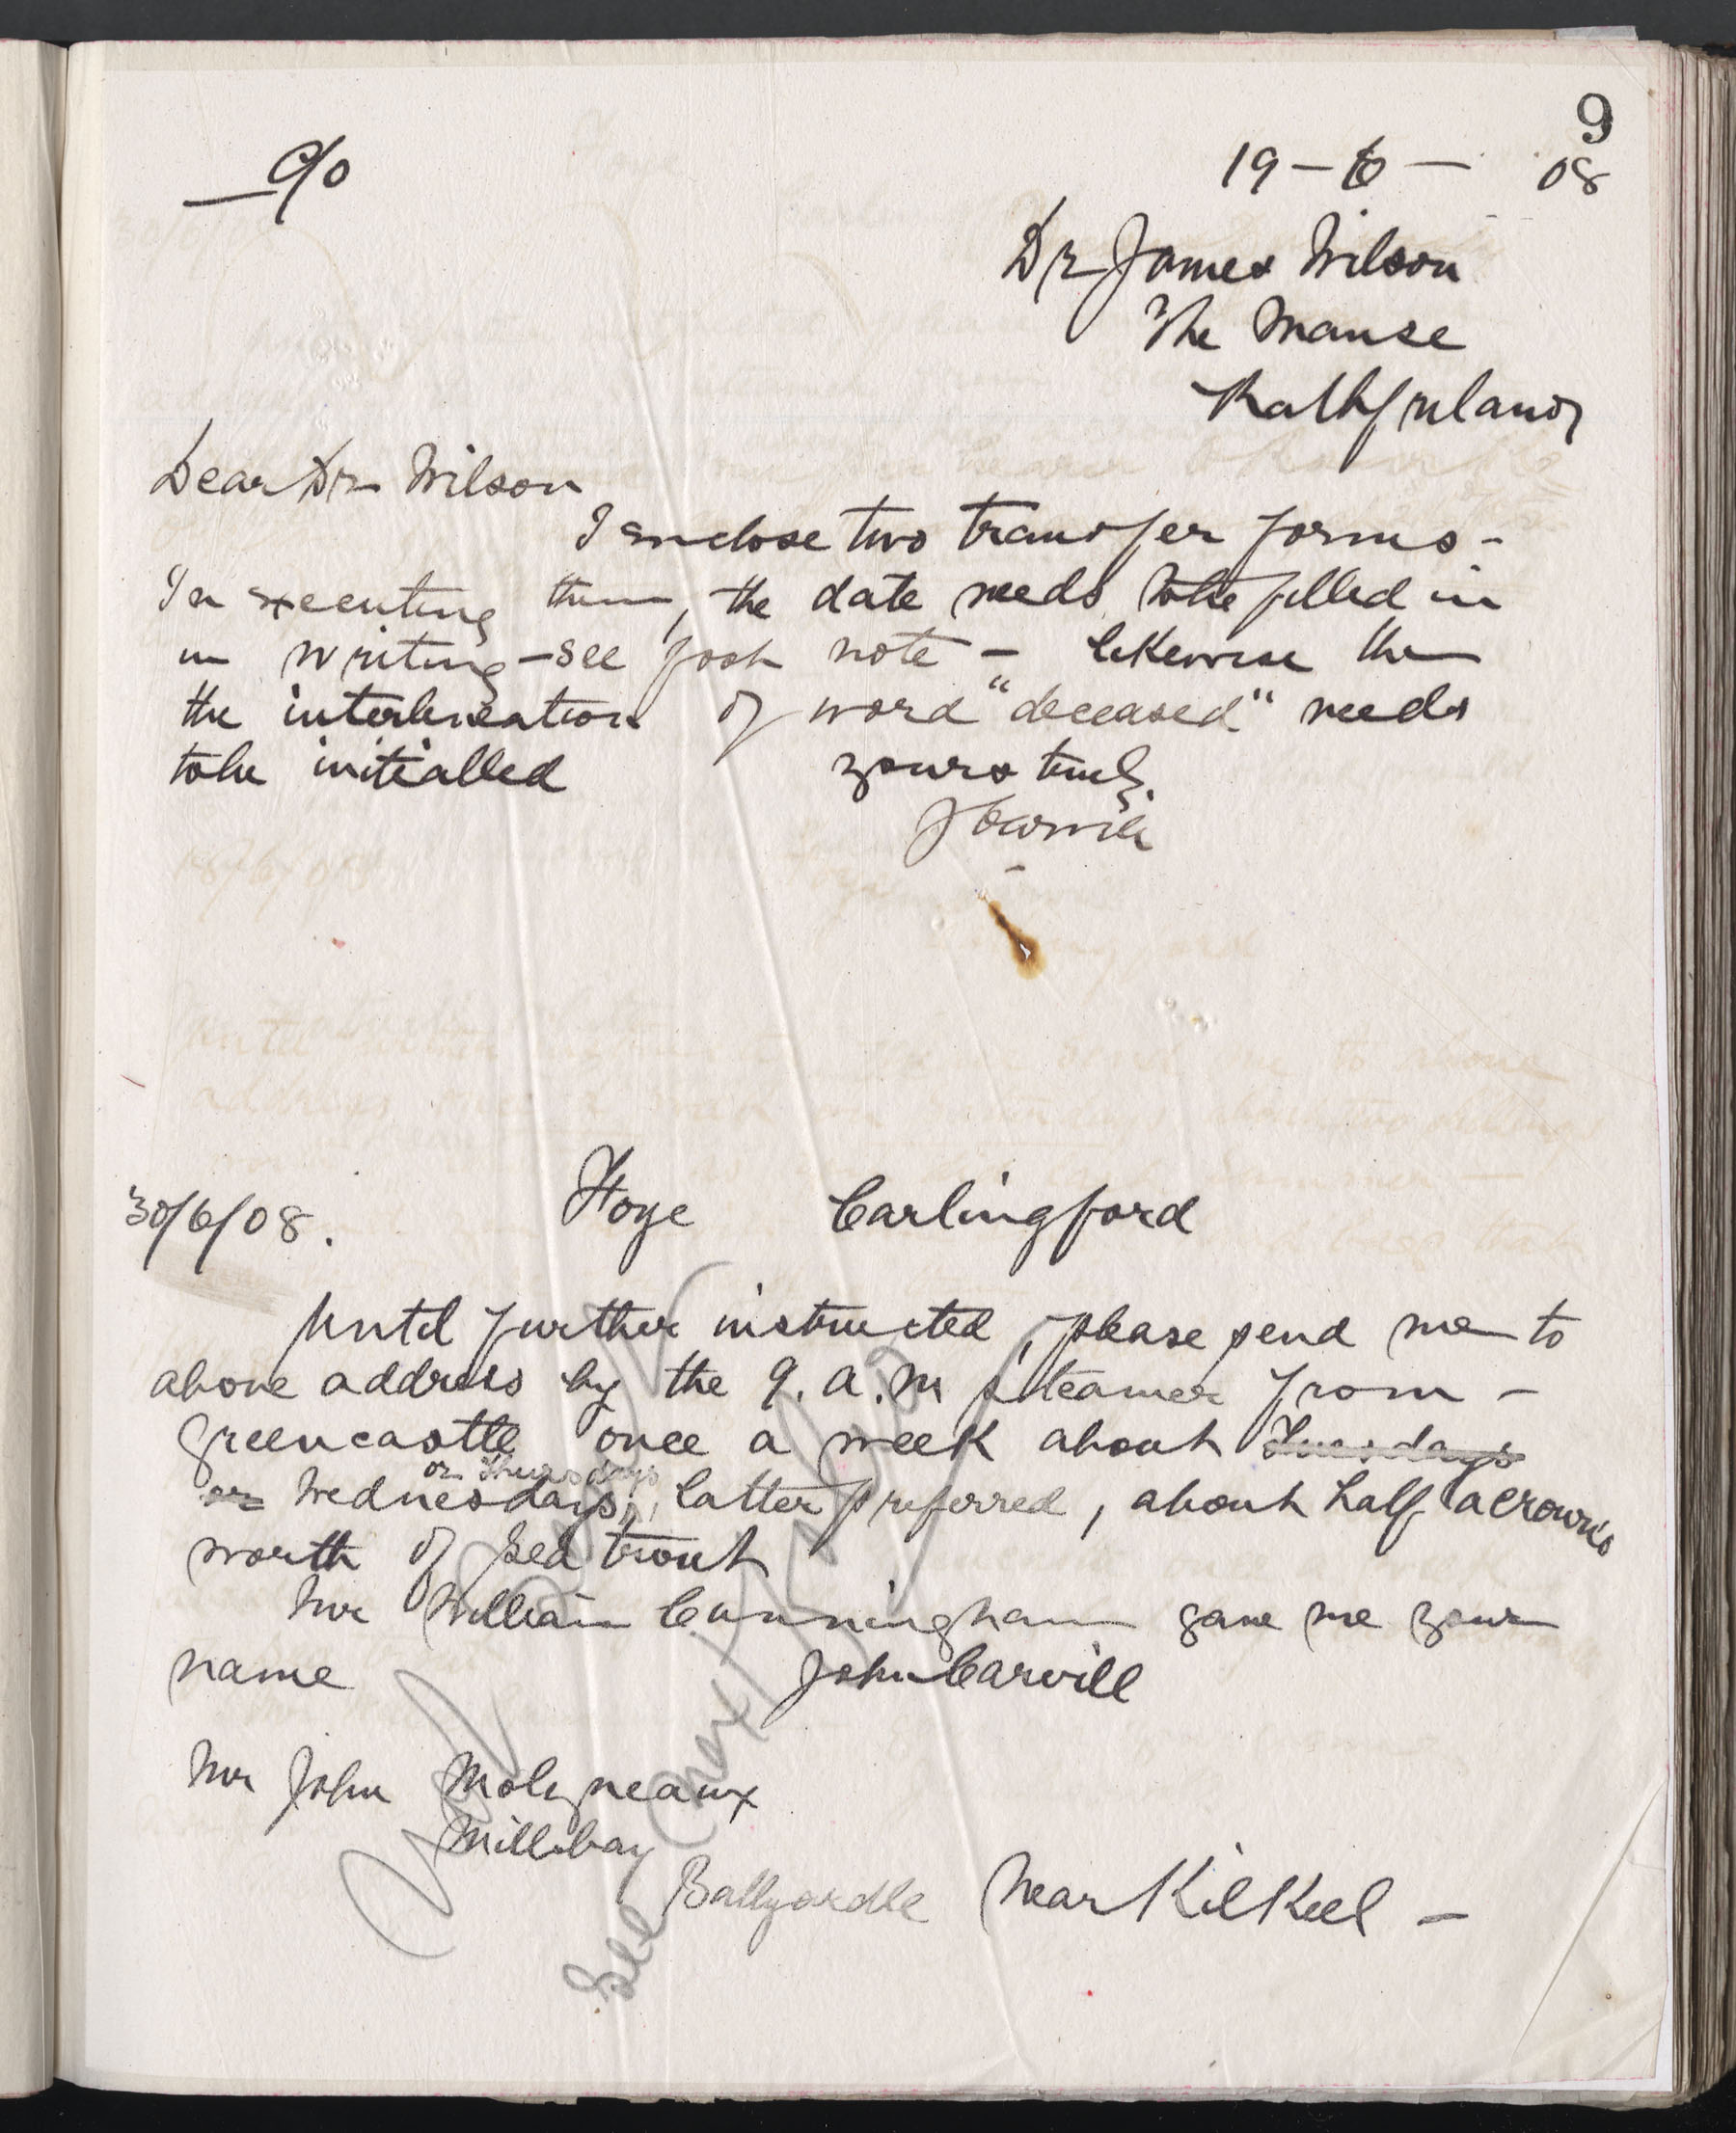 9
c/o
19-6-08
Dr James Wilson
The Manse
Rathfriland
Dear Dr Wilson
I enclose two transfer forms -
In executing them, the date needs to be filled in
in writing - see foot note - likewise the
the interlineation of word "deceased" needs
to be initialled yours truly
JCarvill
30/6/08. Foye Carlingford
Until further instructed, please send me to
above address by the 9. a.m steamer from -
Greencastle once a week about Tuesdays
or Wednesdays, or Thursdays latter preferred, about half a crown's
worth of sea trout
Mr William Cunningham gave me your
name John Carvill
Mr John Molyneaux
Millbay
Ballyardle Near Kilkeel -
See next